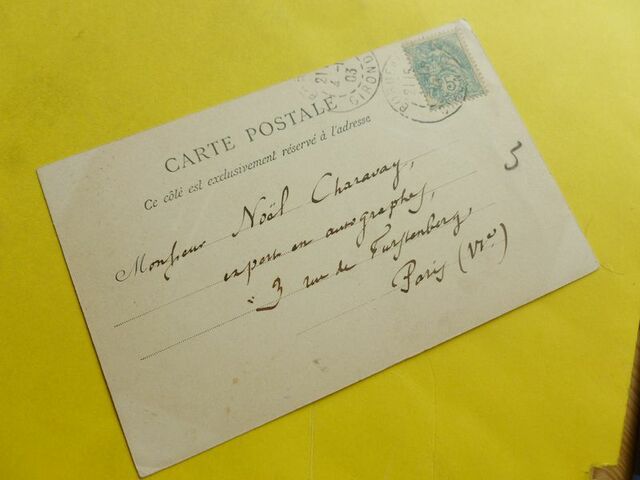 21
4-1
03
GIRONDE
CARTE POSTALE
Ce côté est exclusivement réservé à l'adresse
Monsieur Noël Charavay,
expert en autographes,
3 rue de Furstenberg,
Paris (VIe)
5